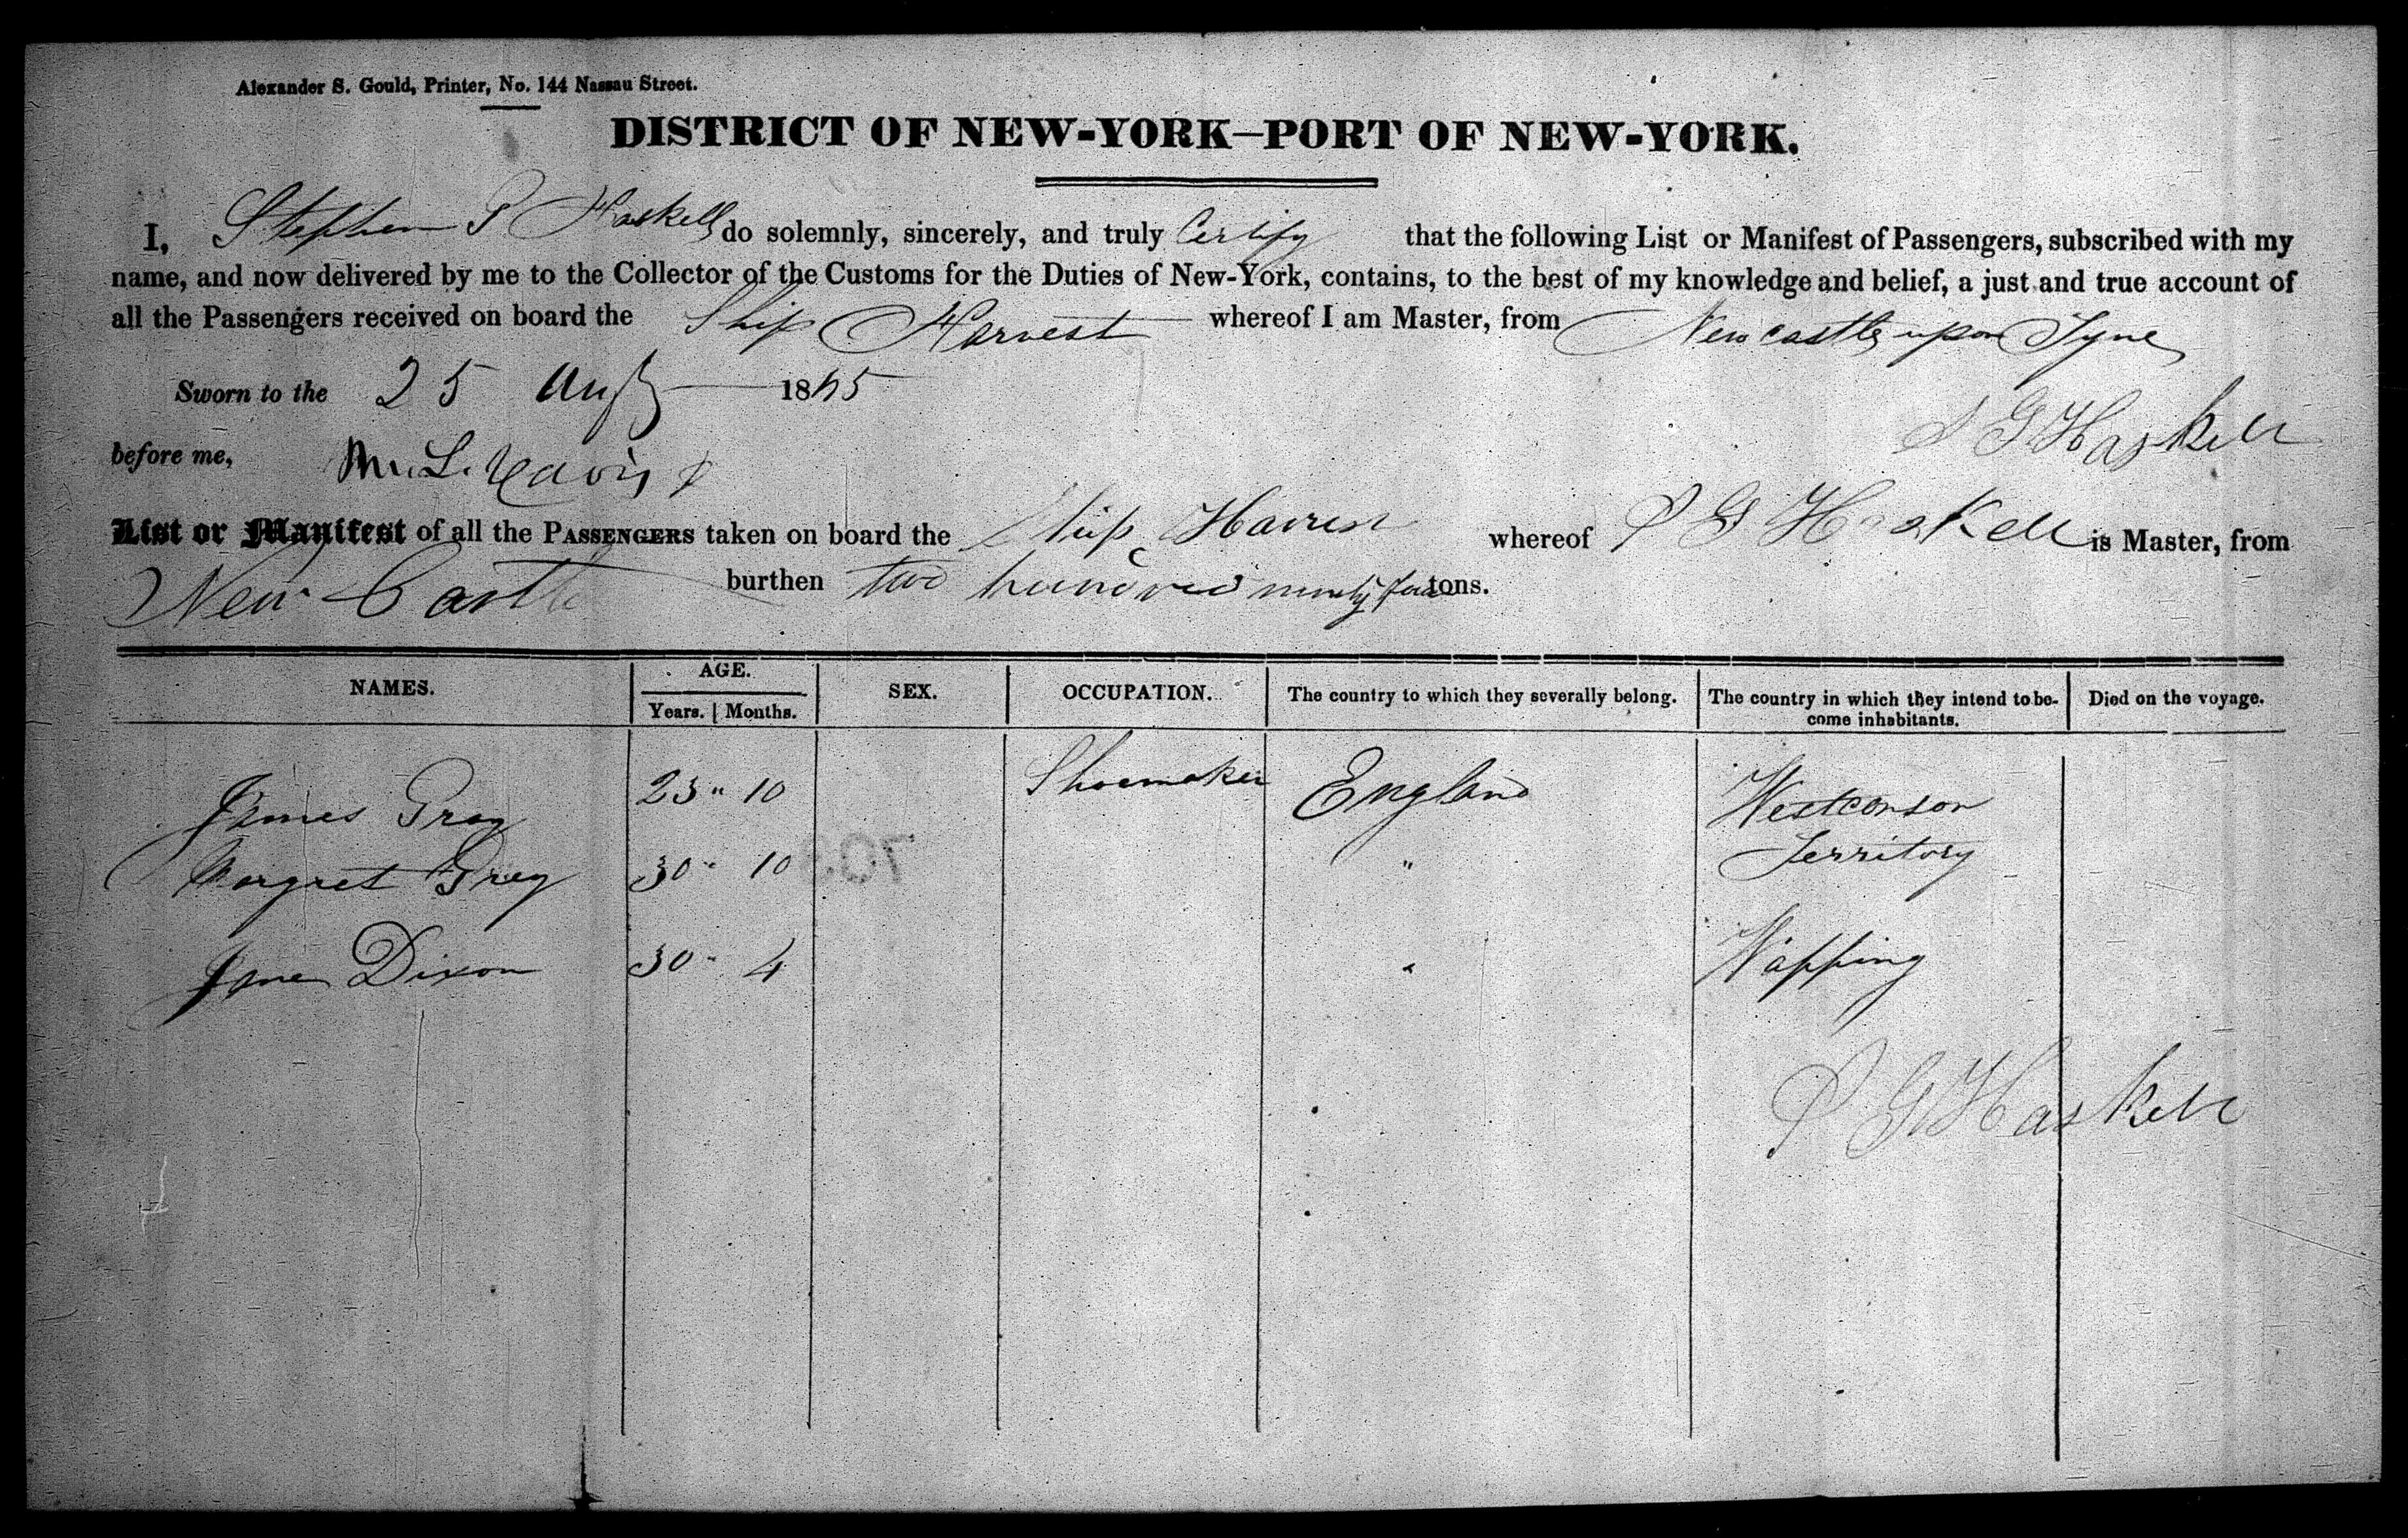 Alexander S. Gould, Printer, No. 144 Nassau Street.
DISTRICT OF NEW-YORK—PORT OF NEW-YORK.
I, Stephen P Haskell do solemnly, sincerely, and truly Certify that the following List or Manifest of Passengers, subscribed with my
name, and now delivered by me to the Collector of the Customs for the Duties of New-York, contains, to the best of my knowledge and belief, a just and true account of
all the Passengers received on board the Ship Harvest whereof I am Master, from Newcastle upon Tyne
Sworn to the 25 Aug 1845
S G Haskell
before me, M. L. Davis
List or Manifest of all the PASSENGERS taken on board the Ship Harvest whereof S G Haskell is Master, from
New Castle burthen two hundred ninety four tons.
NAMES. AGE. SEX. OCCUPATION. The country to which they severally belong. The country in which they intend to be- Died on the voyage.
Years. Months. come inhabitants.
James Gray 23 " 10 Shoemaker England Westconson
Margret Grey 30 " 10 " Territory
Jane Dixon 30 " 4 " Wapping
S G Haskell